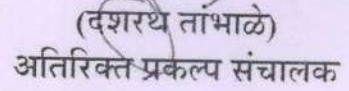 (दशरथ तांभाळे)
अतिरिक्त प्रकल्प संचालक